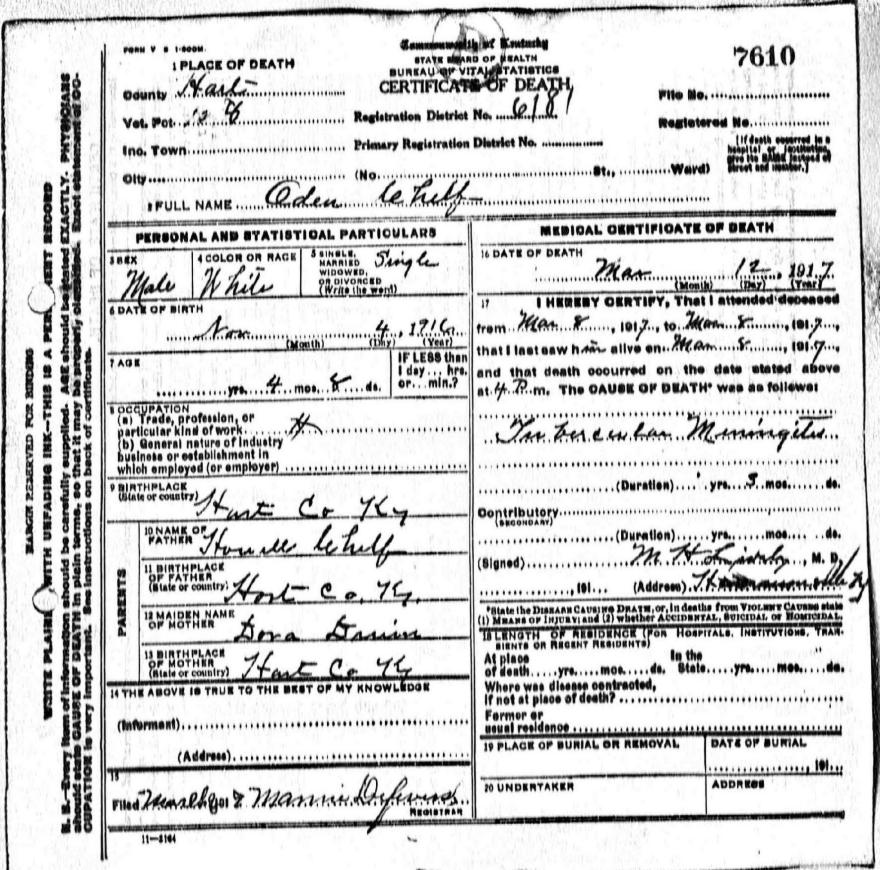 FORM V S 1-500M.
Commonwealth of Kentucky
STATE BOARD OF HEALTH
BUREAU OF VITAL STATISTICS
CERTIFICATE OF DEATH
7610
1 PLACE OF DEATH
County Hart
Vot. Pct.
Registration District No. 6181
File No.
Inc. Town
Primary Registration District No.
Registered No.
City (No. St., Ward)
[If death occurred in a
hospital or institution,
give its NAME instead of
street and number.]
2 FULL NAME Oden Chelf
PERSONAL AND STATISTICAL PARTICULARS
3 SEX
Male
4 COLOR OR RACE
White
5 SINGLE,
MARRIED
WIDOWED,
OR DIVORCED
(Write the word)
Single
6 DATE OF BIRTH
Nov 4, 1916
(Month) (Day) (Year)
7 AGE
yrs. 4 mos. 8 ds.
IF LESS than
1 day... hrs.
or... min.?
8 OCCUPATION
(a) Trade, profession, or
particular kind of work
(b) General nature of industry
business or establishment in
which employed (or employer)
9 BIRTHPLACE
(State or country)
Hart Co Ky
PARENTS
10 NAME OF
FATHER
Chelf
11 BIRTHPLACE
OF FATHER
(State or country)
Hart Co. Ky.
12 MAIDEN NAME
OF MOTHER
Dora
13 BIRTHPLACE
OF MOTHER
(State or country)
Hart Co Ky
14 THE ABOVE IS TRUE TO THE BEST OF MY KNOWLEDGE
(Informant)
(Address)
15
Filed
REGISTRAR
11—3184
MEDICAL CERTIFICATE OF DEATH
16 DATE OF DEATH
Mar 12, 1917
(Month) (Day) (Year)
17 I HEREBY CERTIFY, That I attended deceased
from Mar 8, 1917, to Mar 8, 1917,
that I last saw him alive on Mar 8, 1917,
and that death occurred on the date stated above
at 4 P. m. The CAUSE OF DEATH* was as follows:
Tubercular Meningitis
(Duration) yrs. 3 mos. ds.
Contributory
(SECONDARY)
(Duration) yrs. mos. ds.
(Signed) M. D.
, 191 (Address)
*State the DISEASE CAUSING DEATH, or, in deaths from VIOLENT CAUSES state
(1) MEANS OF INJURY; and (2) whether ACCIDENTAL, SUICIDAL or HOMICIDAL.
18 LENGTH OF RESIDENCE (FOR HOSPITALS, INSTITUTIONS, TRAN-
SIENTS OR RECENT RESIDENTS)
At place In the
of death yrs. mos. ds. State yrs. mos. ds.
Where was disease contracted,
if not at place of death?
Former or
usual residence
19 PLACE OF BURIAL OR REMOVAL
DATE OF BURIAL
191
20 UNDERTAKER
ADDRESS
MARGIN RESERVED FOR BINDING
WRITE PLAINLY WITH UNFADING INK—THIS IS A PERMANENT RECORD
N. B.—Every item of information should be carefully supplied. AGE should be stated EXACTLY. PHYSICIANS
should state CAUSE OF DEATH in plain terms, so that it may be properly classified. Exact statement of OC-
CUPATION is very important. See instructions on back of certificate.